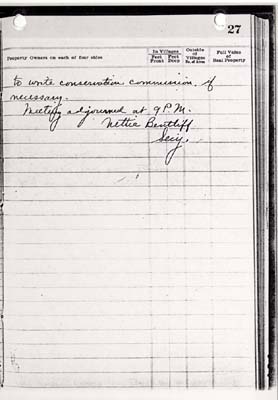 27
Property Owners on each of four sides
In Villages
Feet Front
Feet Deep
Outside of Villages
No. of Acres
Full Value of Real Property
to write conservation commission, if
necessary.
Meeting adjourned at 9 P.M.
Nettie Bentliff
Secy.